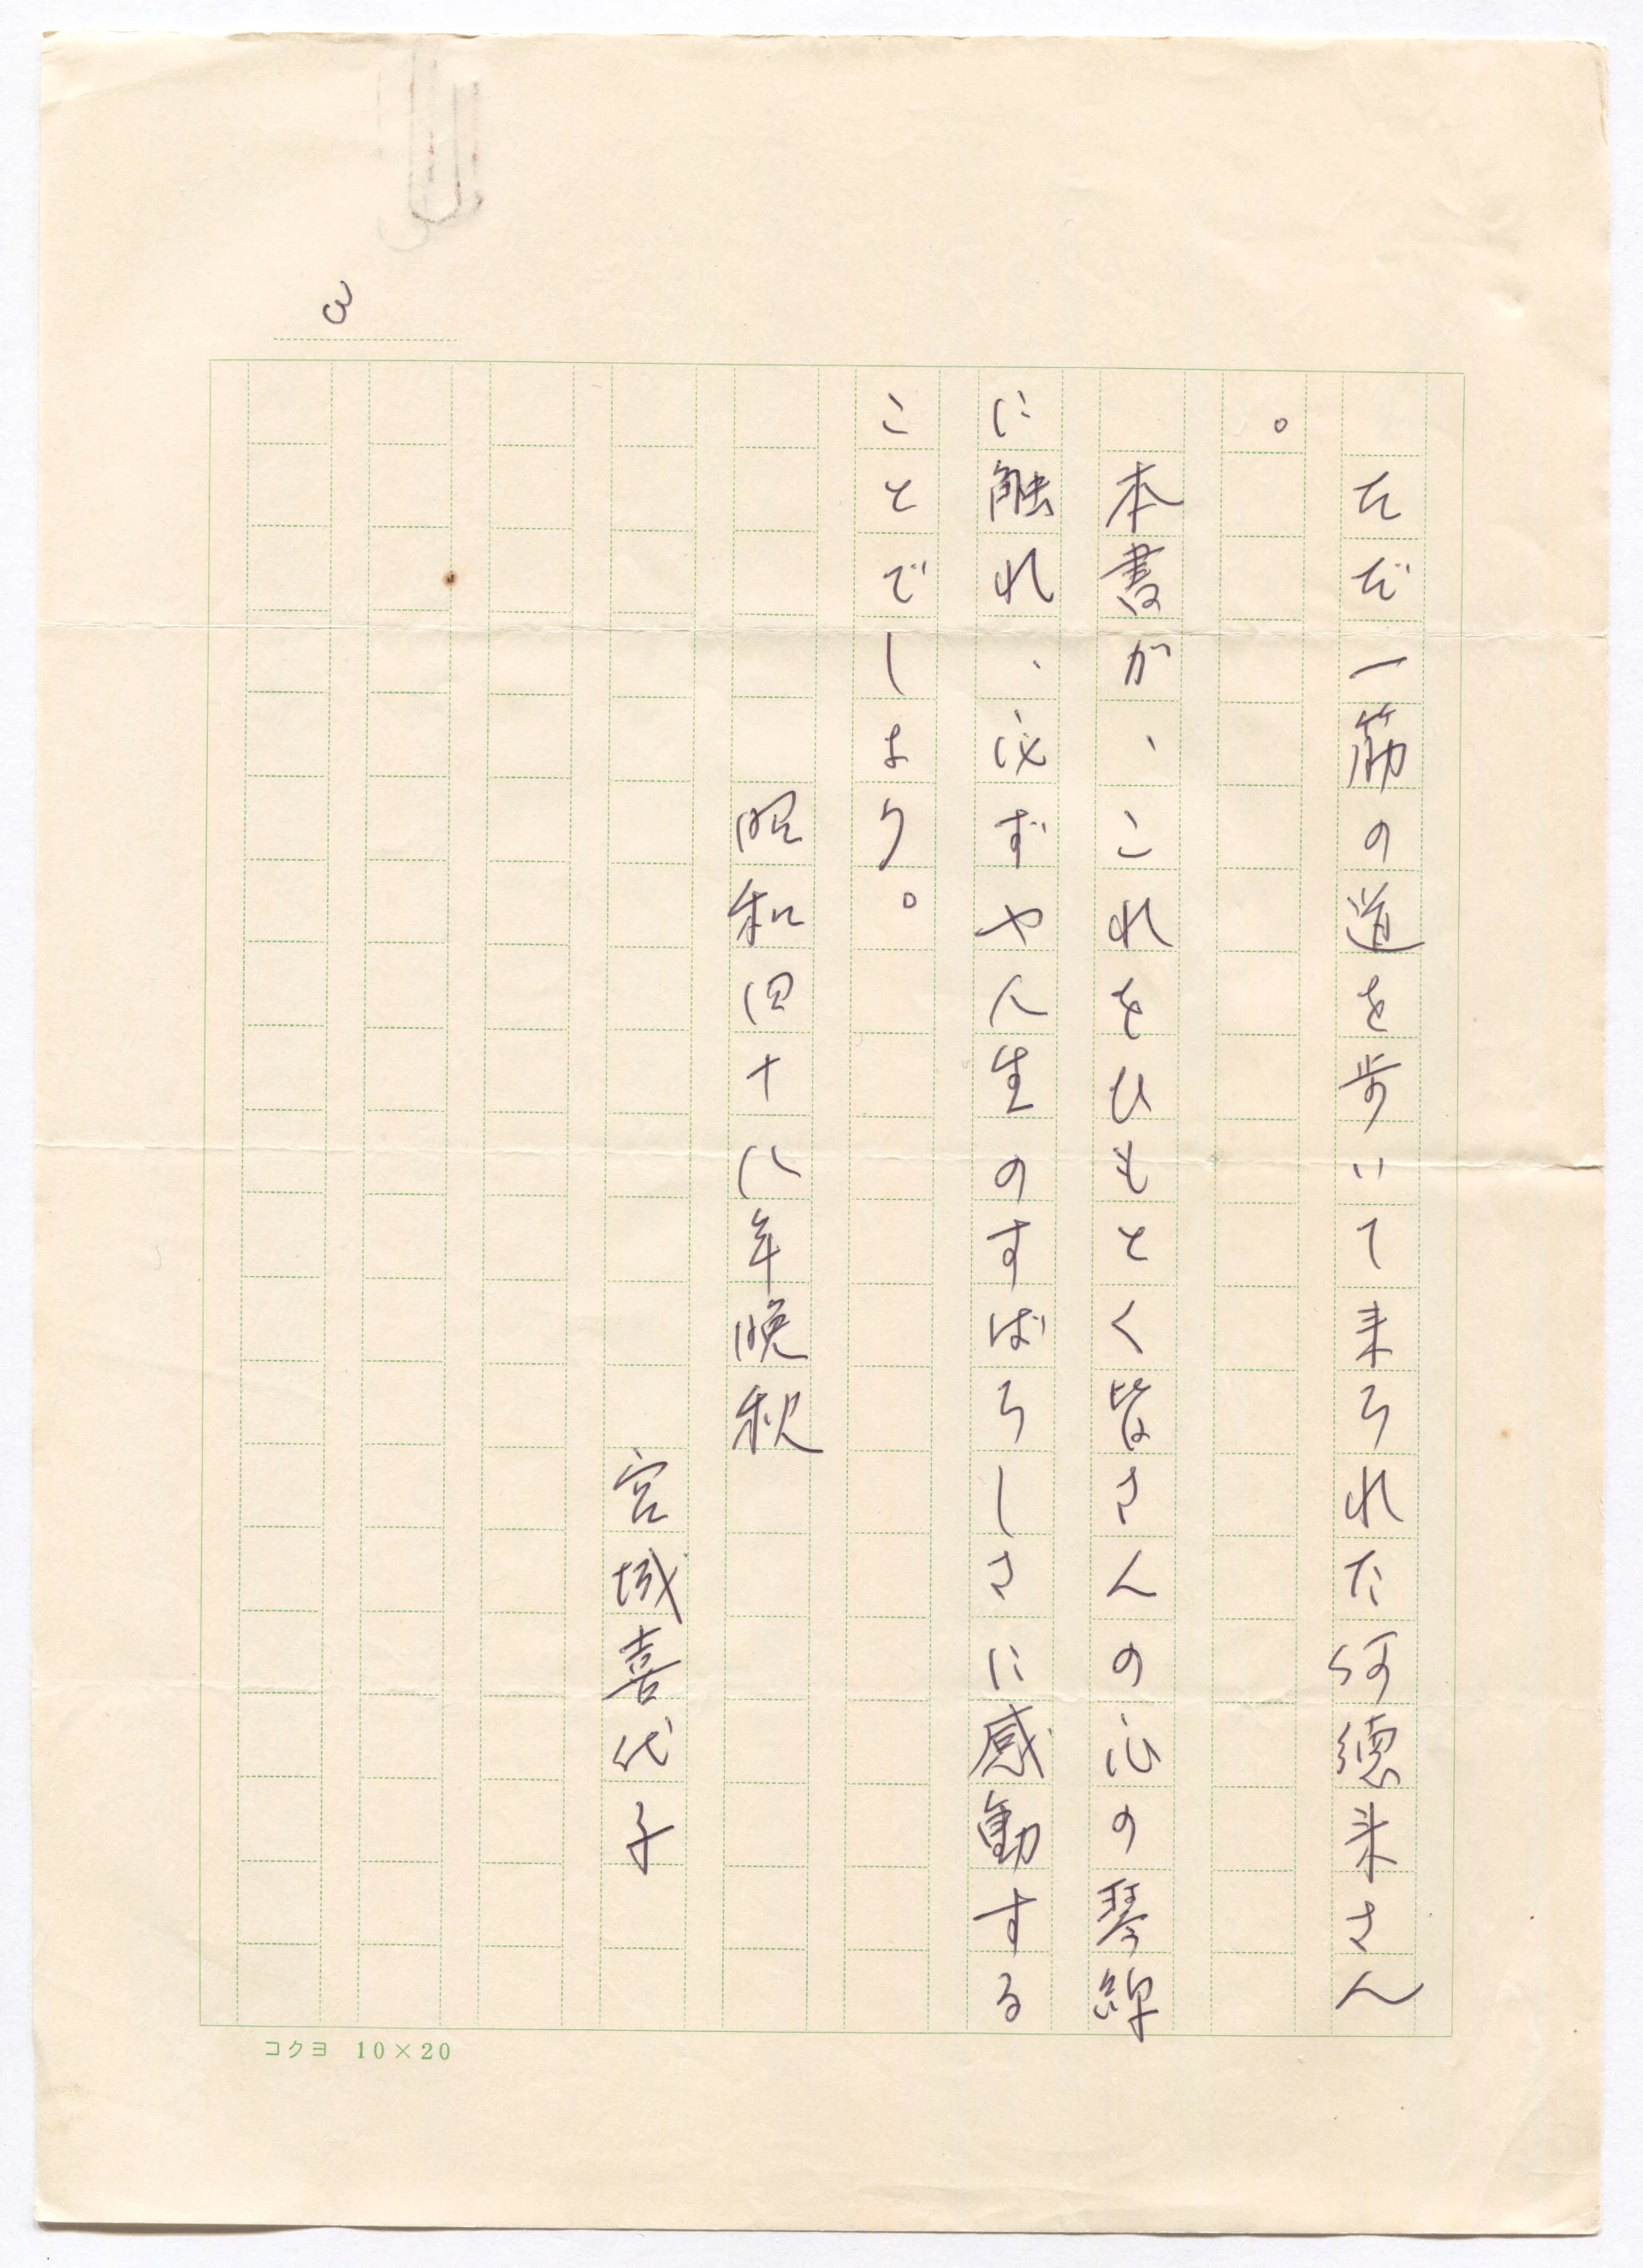 3
ただ一筋の道を歩いて来られた阿徳来さん
。
本書が、これをひもとく皆さんの心の琴線
に触れ、必ずや人生のすばらしさに感動する
ことでしょう。
昭和四十八年晩秋
宮城喜代子
コクヨ 10×20